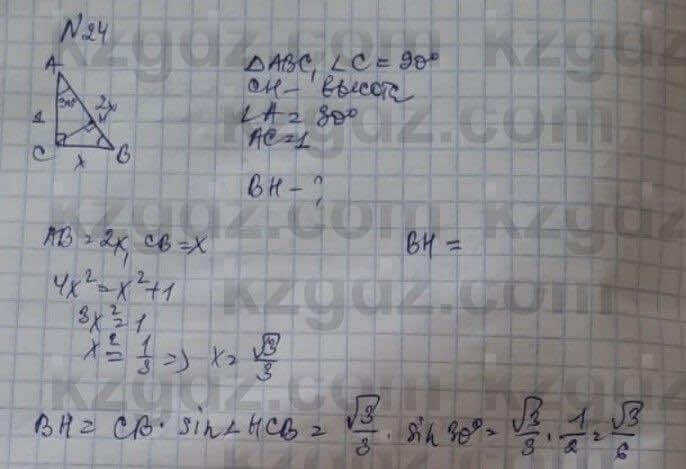 N24
A
30°
2x
1
C
H
x
B
△ABC, ∠C = 90°
CH – высота
∠A = 30°
AC = 1
BH – ?
AB = 2x, CB = x
BH =
4x² = x² + 1
3x² = 1
x² = 1/3 => x = √3/3
BH = CB · sin∠HCB = √3/3 · sin 30° = √3/3 · 1/2 = √3/6
kzgdz.com
kzgdz.com
kzgdz.com
kzgdz.com
kzgdz.com